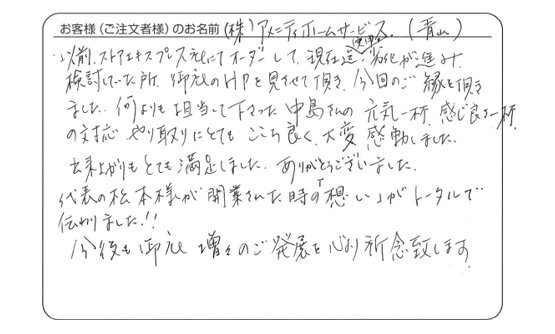 お客様(ご注文者様)のお名前 (株)アメニティホームサービス.(青山)
以前、ストアエキスプレス社にてオーダーして、現在迄使用し、劣化が進み、
検討していた所、御社のHPを見させて頂き、今回のご縁を頂き
ました。何よりも担当して下さった中島さんの元気一杯、感じ良さ一杯
の対応 やり取りにとても ここち良く、大変 感動しました。
出来上がりもとても満足しました。ありがとうございました。
代表の松本様が開業された時の「想い」がトータルで
伝わりました!!
今後も御社 増々のご発展を心より祈念致します